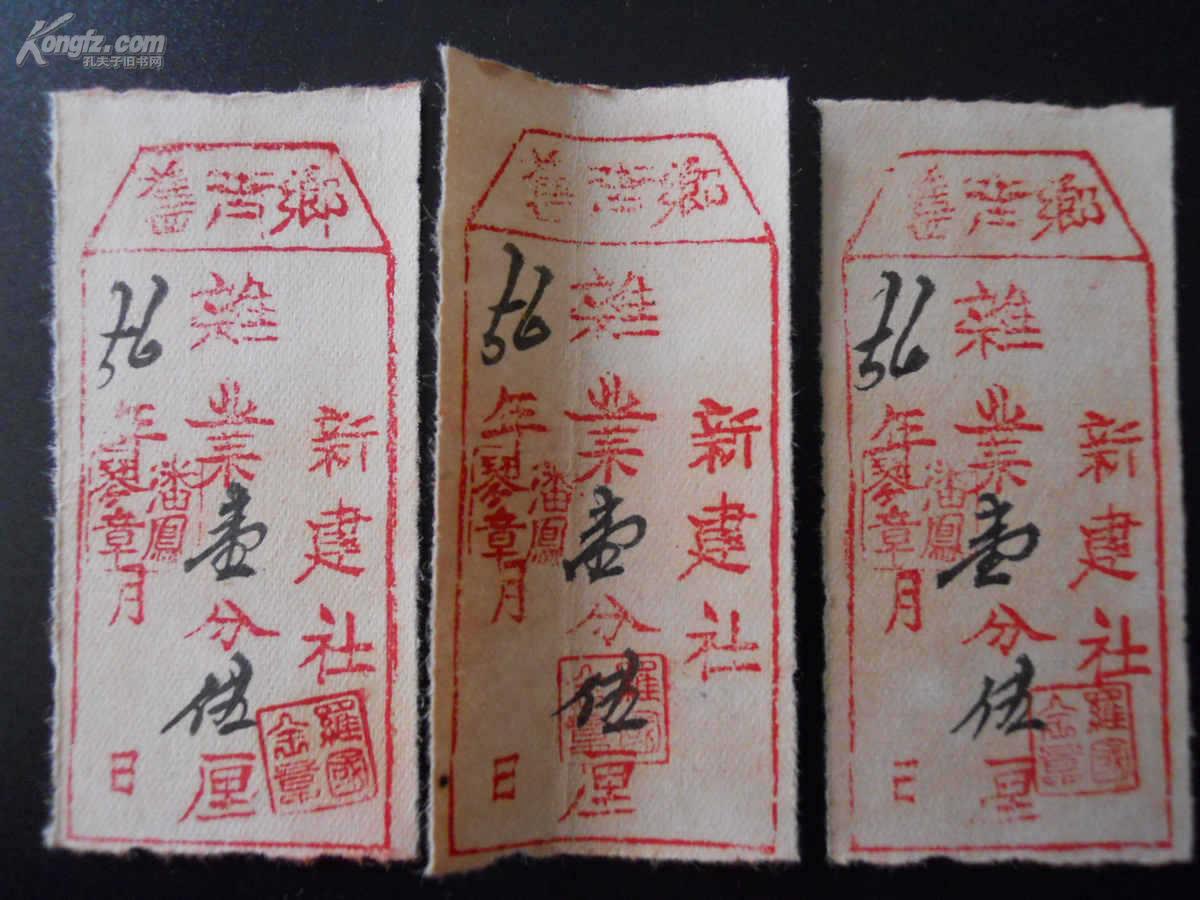 Kongfz.com
孔夫子旧书网
舊治鄉
新建社
雜業壹分伍厘
56年月日
潘鳳
琴章
羅國
金章
舊治鄉
新建社
雜業壹分伍厘
56年月日
潘鳳
琴章
羅國
金章
舊治鄉
新建社
雜業壹分伍厘
56年月日
潘鳳
琴章
羅國
金章